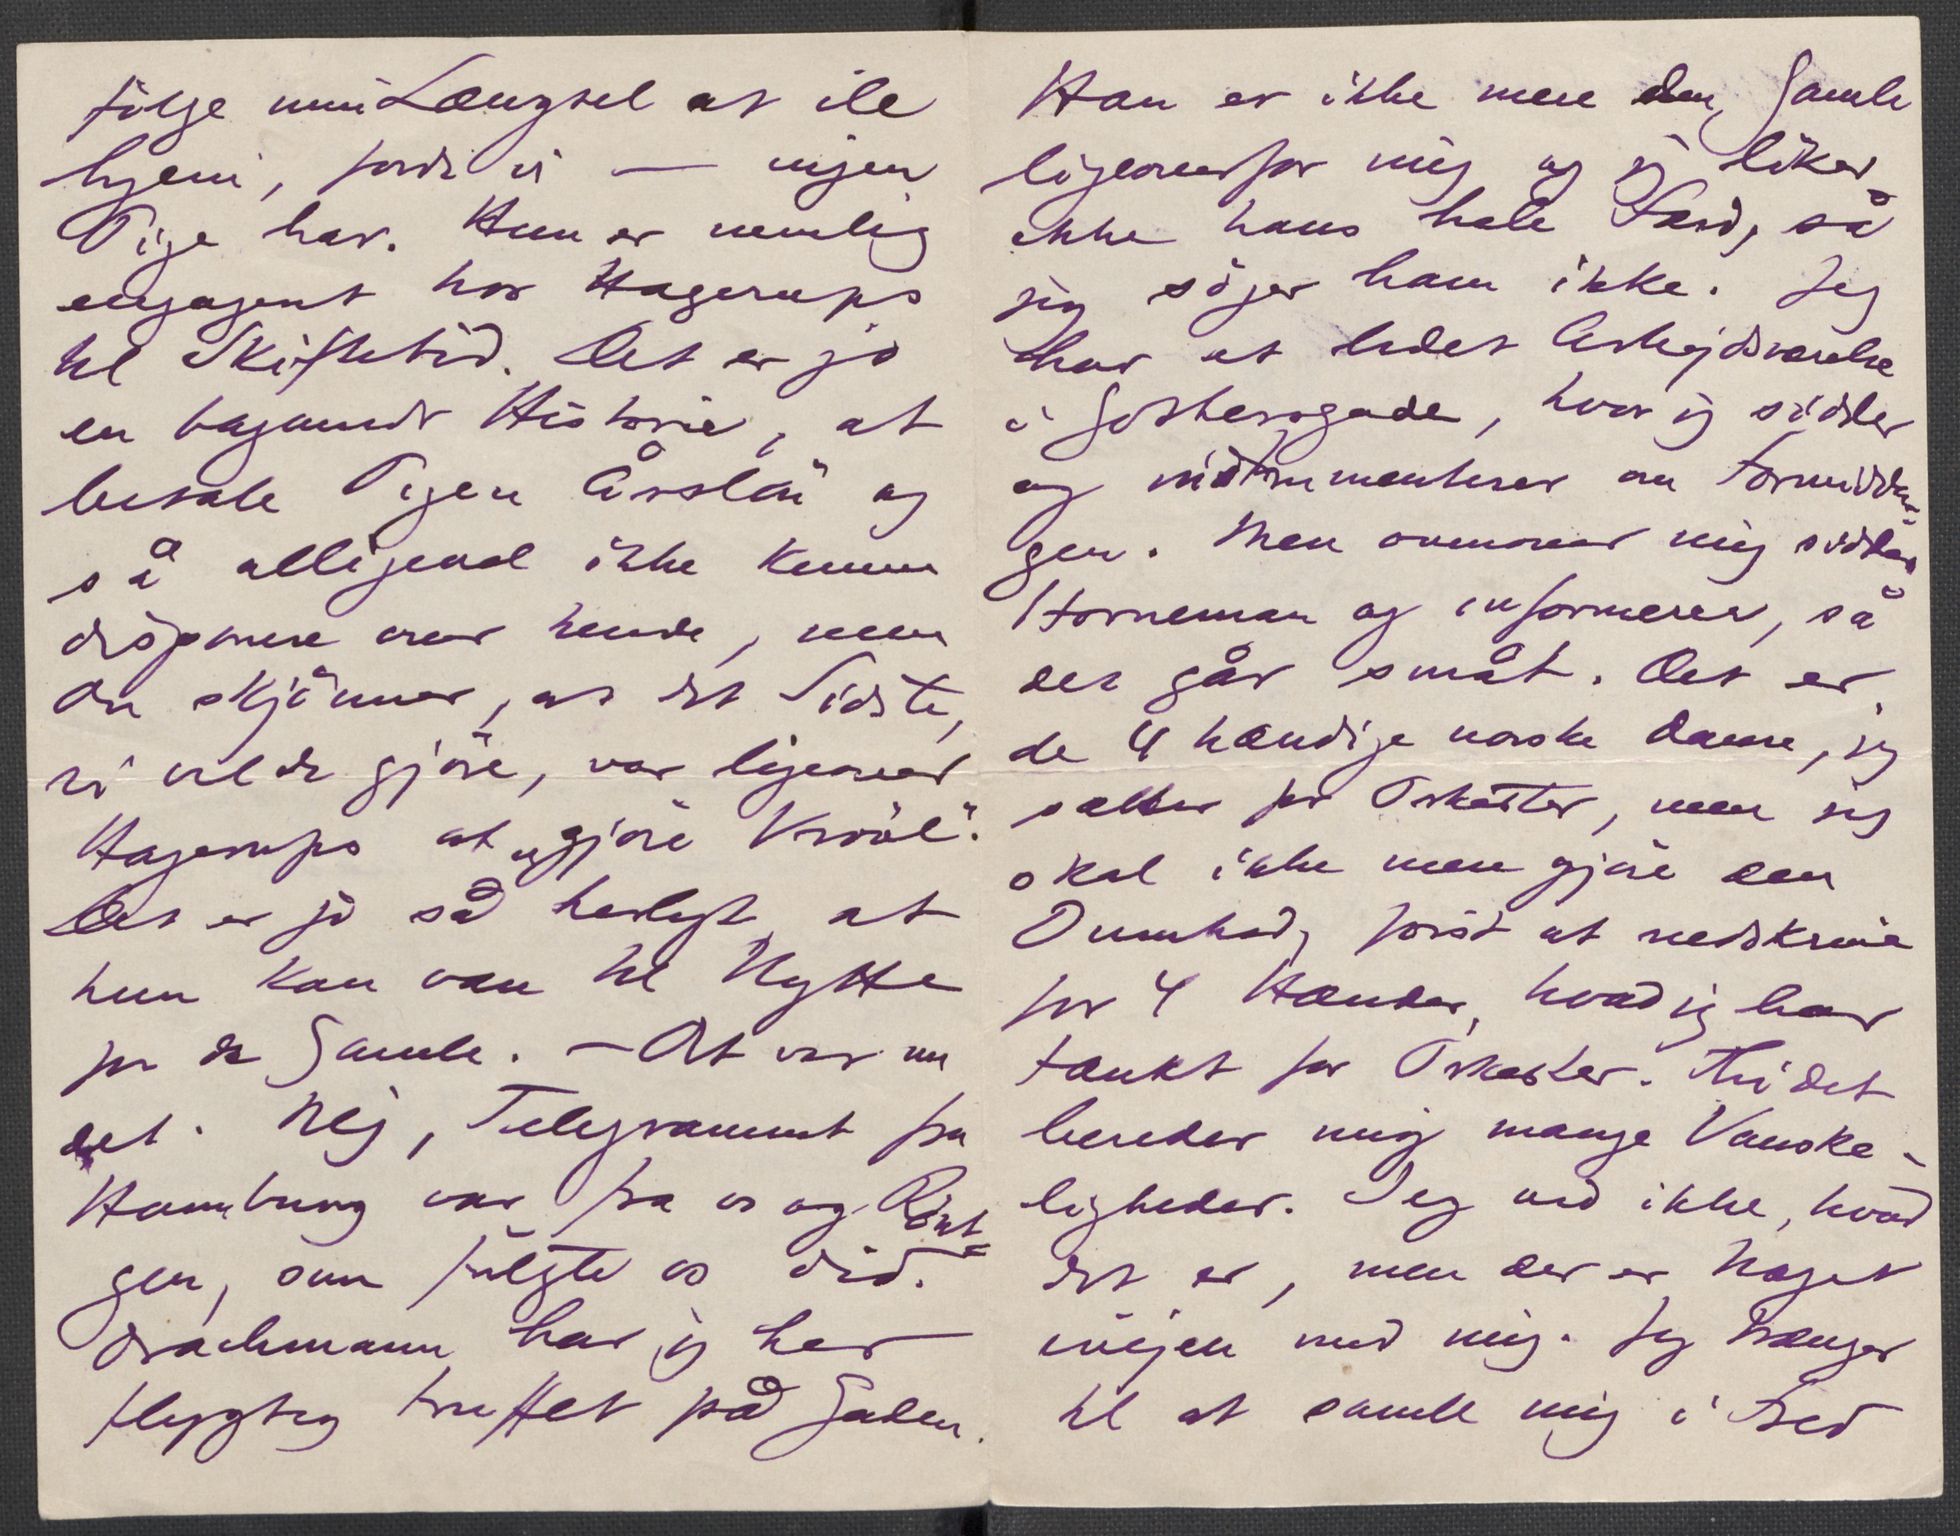 følge min Længsel at ile
hjem, fordi vi — ingen
Pige har. Hun er nemlig
engageret hos Hagerups
til Skiftetid. Det er jo
en bagvendt Historie, at
betale Pigen Årsløn og
så alligevel ikke kunne
disponere over hende, men
Du skjönner, at det Sidste,
vi vilde gjöre, var ligeover
Hagerups at „gjöre Kvöl".
Det er jo så herligt, at
hun kan være til Nytte
for de Gamle. – Det var nu
det. Nej, Telegrammet fra
Hamburg var fra os og Rönt=
gen, som fulgte os did.
Drachmann har jeg her
flygtig truffet på Gaden.
Han er ikke mere den Gamle
ligeoverfor mig og jeg liker
ikke hans hele Færd, så
jeg söger ham ikke. Jeg
har et ledet Arbejdsværelse
i Gothersgade, hvor jeg sidder
og instrumenterer om Formidda-
gen. Men ovenover mig sidder
Horneman og informerer, så
det går småt. Det er
de 4 hændige norske Danse, jeg
sætter for Orkester, men jeg
skal ikke mere gjöre den
Dumhed, först at nedskrive
for 4 Hænder, hvad jeg har
tænkt for Orkester. Thi det
bereder mig mange Vanske-
ligheder. Jeg ved ikke, hvad
det er, men der er Noget
ivejen med mig. Jeg trænger
til at samle mig i Fred